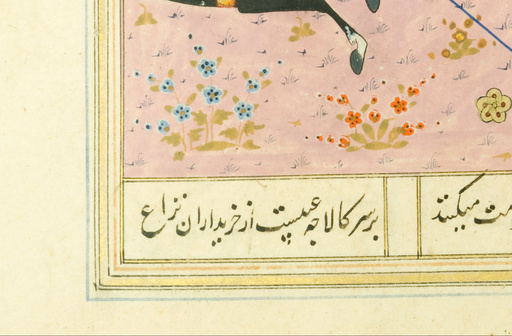 میکنند بر سر کالا چه عیبست از خریداران نزاع